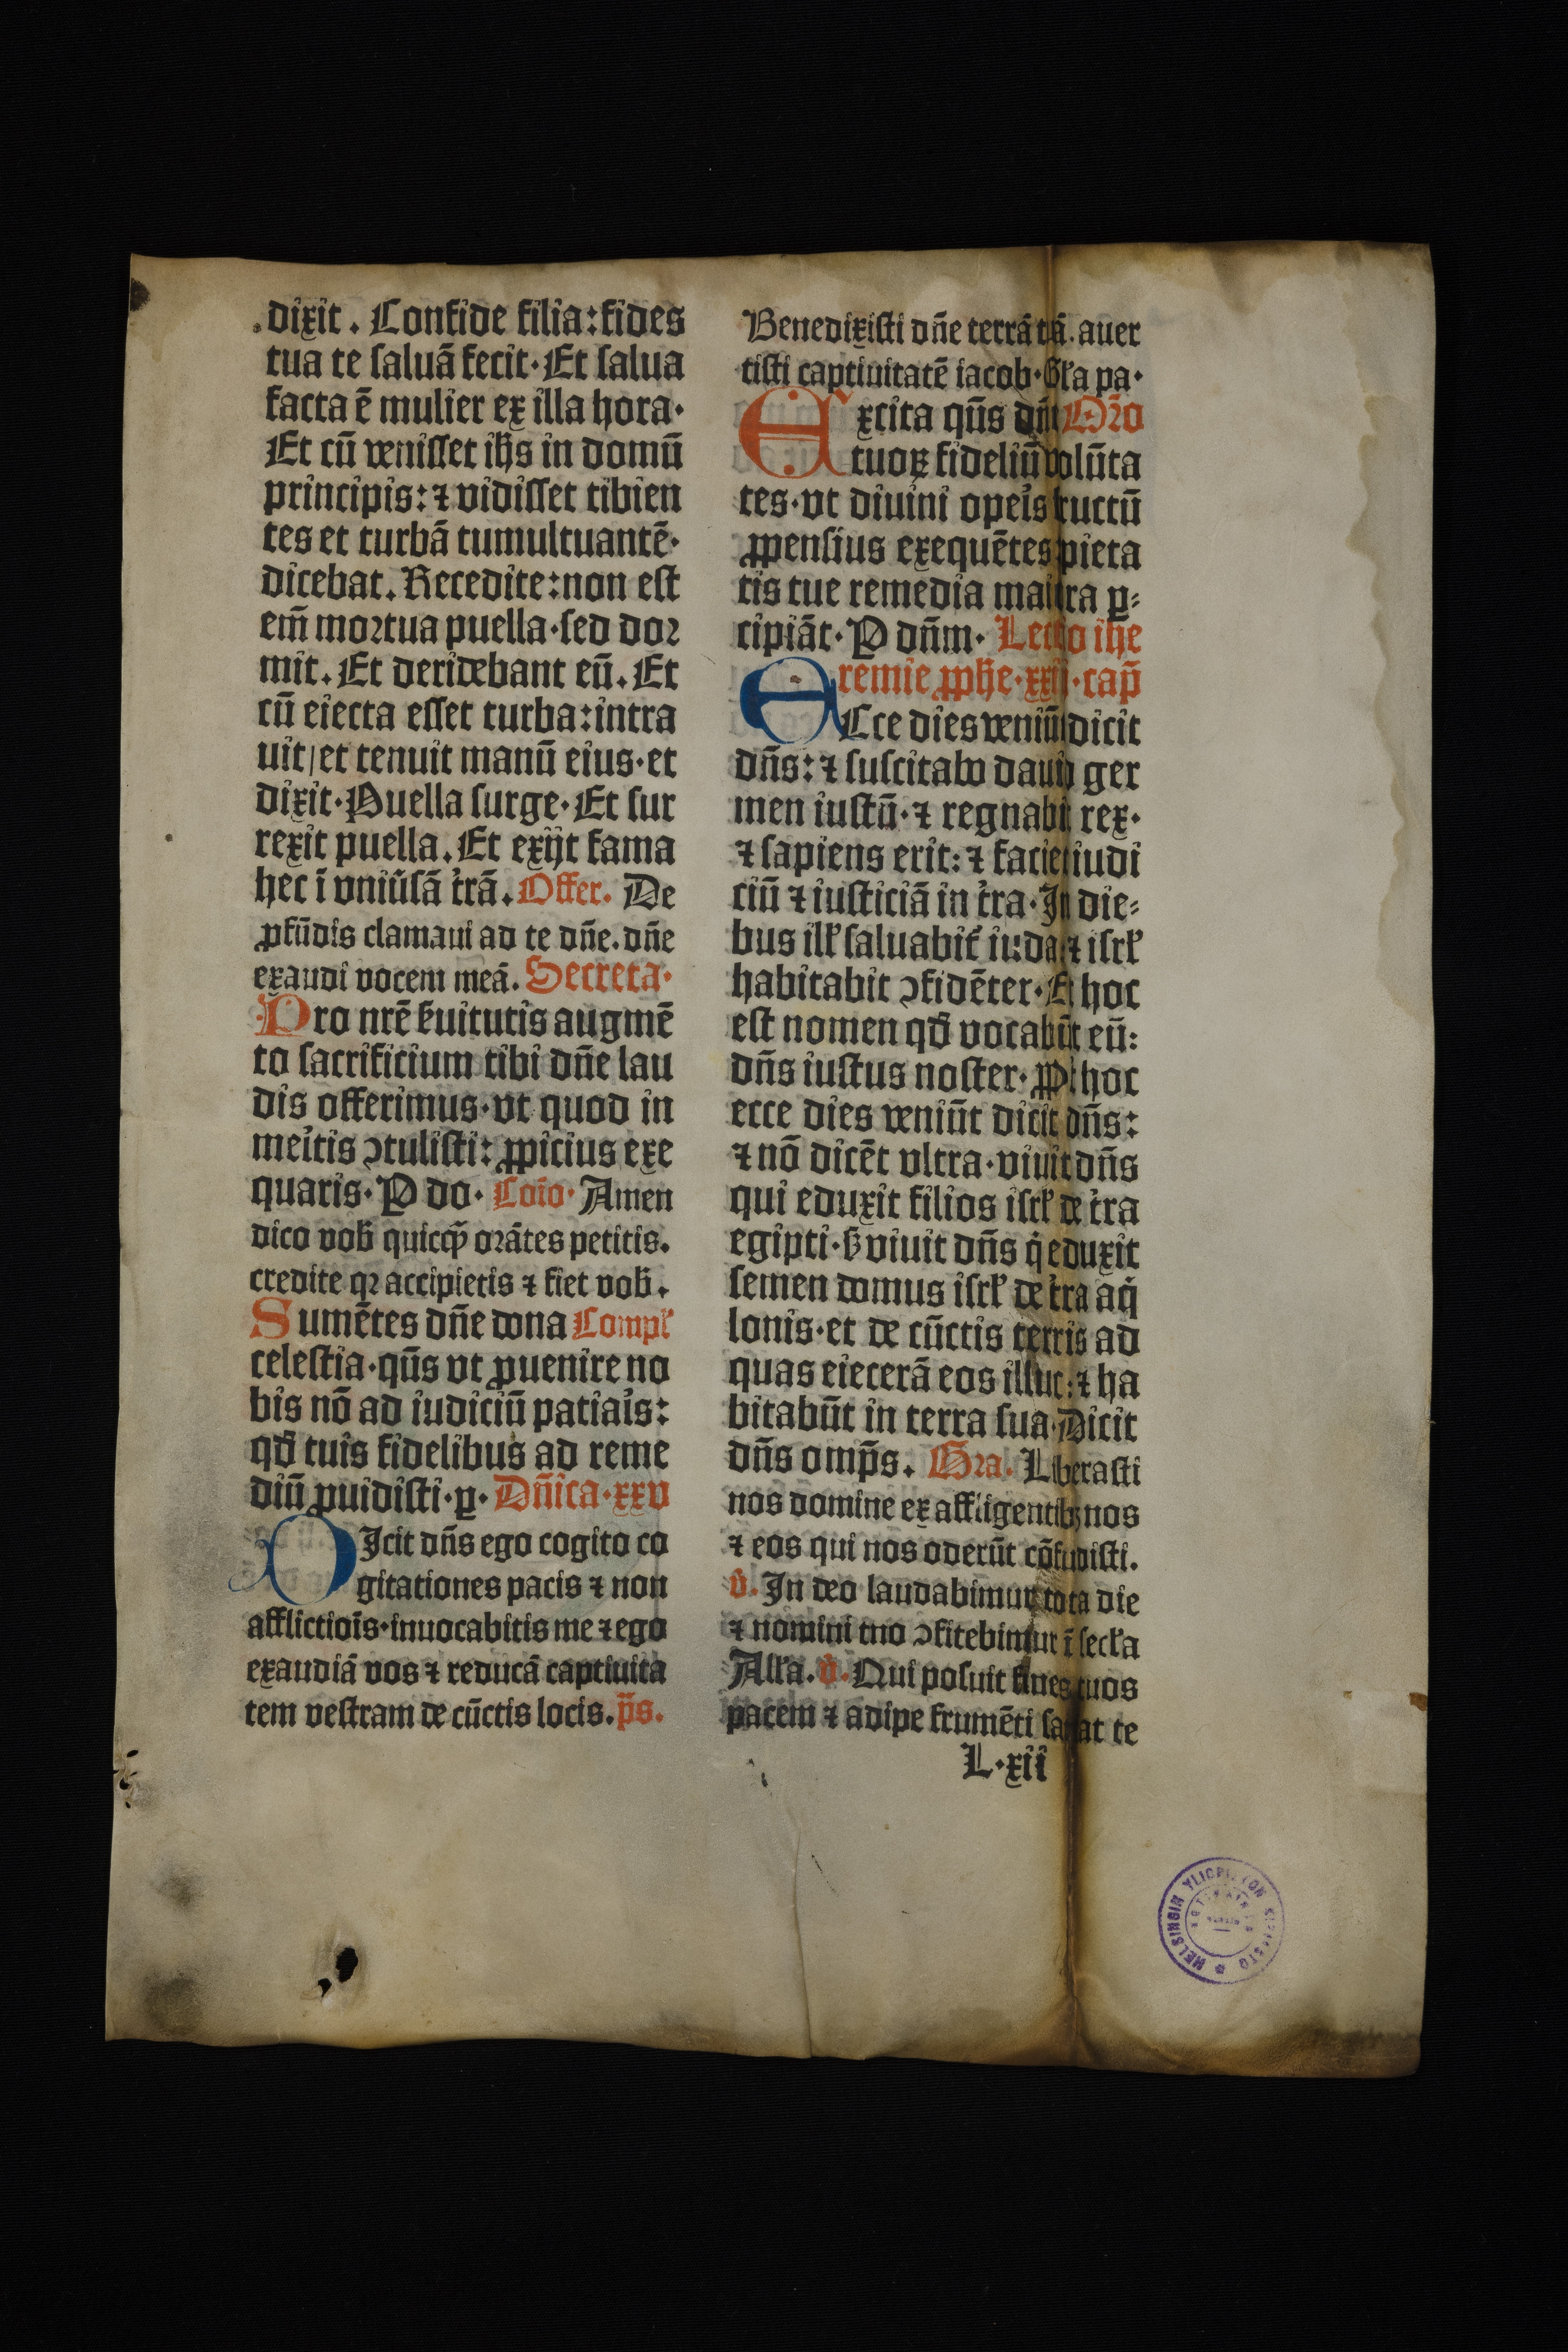 dixit. Confide filia: fides
tua te saluā fecit. Et salua
facta ē mulier ex illa hora.
Et cū venisset ihs in domū
principis: ⁊ vidisset tibien
tes et turbā tumultuantē.
dicebat. Recedite: non est
em̄ mortua puella. sed dor
mit. Et deridebant eū. Et
cū eiecta esset turba: intra
uit/ et tenuit manū eius. et
dixit. Puella surge. Et sur
rexit puella. Et exijt fama
hec ī vniūsā t̄rā. Offer. De
ꝓfūdis clamaui ad te dn̄e. dn̄e
exaudi vocem meā. Secreta.
Pro nrē ẜuitutis augmē
to sacrificium tibi dn̄e lau
dis offerimus. vt quod in
meītis ꝯtulisti: ꝓpicius exe
quaris. P do. Coīo. Amen
dico vob̄ quicqꝫ orātes petitis.
credite qꝛ accipietis ⁊ fiet vob̄.
Sumētes dn̄e dona Compł
celestia. qūs vt ꝓuenire no
bis nō ad iudiciū patiaīs:
qđ tuis fidelibus ad reme
diū ꝓuidisti. ꝑ. Dn̄ica. xxv
DIcit dn̄s ego cogito co
gitationes pacis ⁊ non
afflictioīs. inuocabitis me ⁊ ego
exaudiā vos ⁊ reducā captiuita
tem vestram de cūctis locis. p̄s.
Benedixisti dn̄e terrā tuā. auer
tisti captiuitatē iacob. Gła pa.
Excita qūs dn̄e Orō
tuoꝝ fideliū volūta
tes. vt diuini opeīs fructū
ꝓpensius exequētes pieta
tis tue remedia maiora ꝑ⸗
cipiāt. P dn̄m. Lectio ihe
remie ꝓphe. xxiij. cap̄
ECce dies veniūt dicit
dn̄s: ⁊ suscitabo dauid ger
men iustū. ⁊ regnabit rex.
⁊ sapiens erit: ⁊ faciet iudi
ciū ⁊ iusticiā in t̄ra. In die⸗
bus iłł saluabit̄ iuda ⁊ isrł
habitabit ꝯfidēter. Et hoc
est nomen qđ vocabūt eū:
dn̄s iustus noster. Ꝓpt hoc
ecce dies veniūt dicit dn̄s:
⁊ nō dicēt vltra. viuit dn̄s
qui eduxit filios isrł de t̄ra
egipti. ẜ viuit dn̄s q̇ eduxit
semen domus isrł de t̄ra aq̇
lonis. et de cūctis terris ad
quas eiecerā eos illuc: ⁊ ha
bitabūt in terra sua. Dicit
dn̄s omp̄s. Gra. Liberasti
nos domine ex affligentibꝫ nos
⁊ eos qui nos oderūt cōfudisti.
v̇. In deo laudabimur tota die
⁊ nomini tuo ꝯfitebimur ī secła
Ałła. v̇. Qui posuit fines tuos
pacem ⁊ adipe frumēti saciat te
L. xii
HELSINGIN YLIOPISTON KIRJASTO